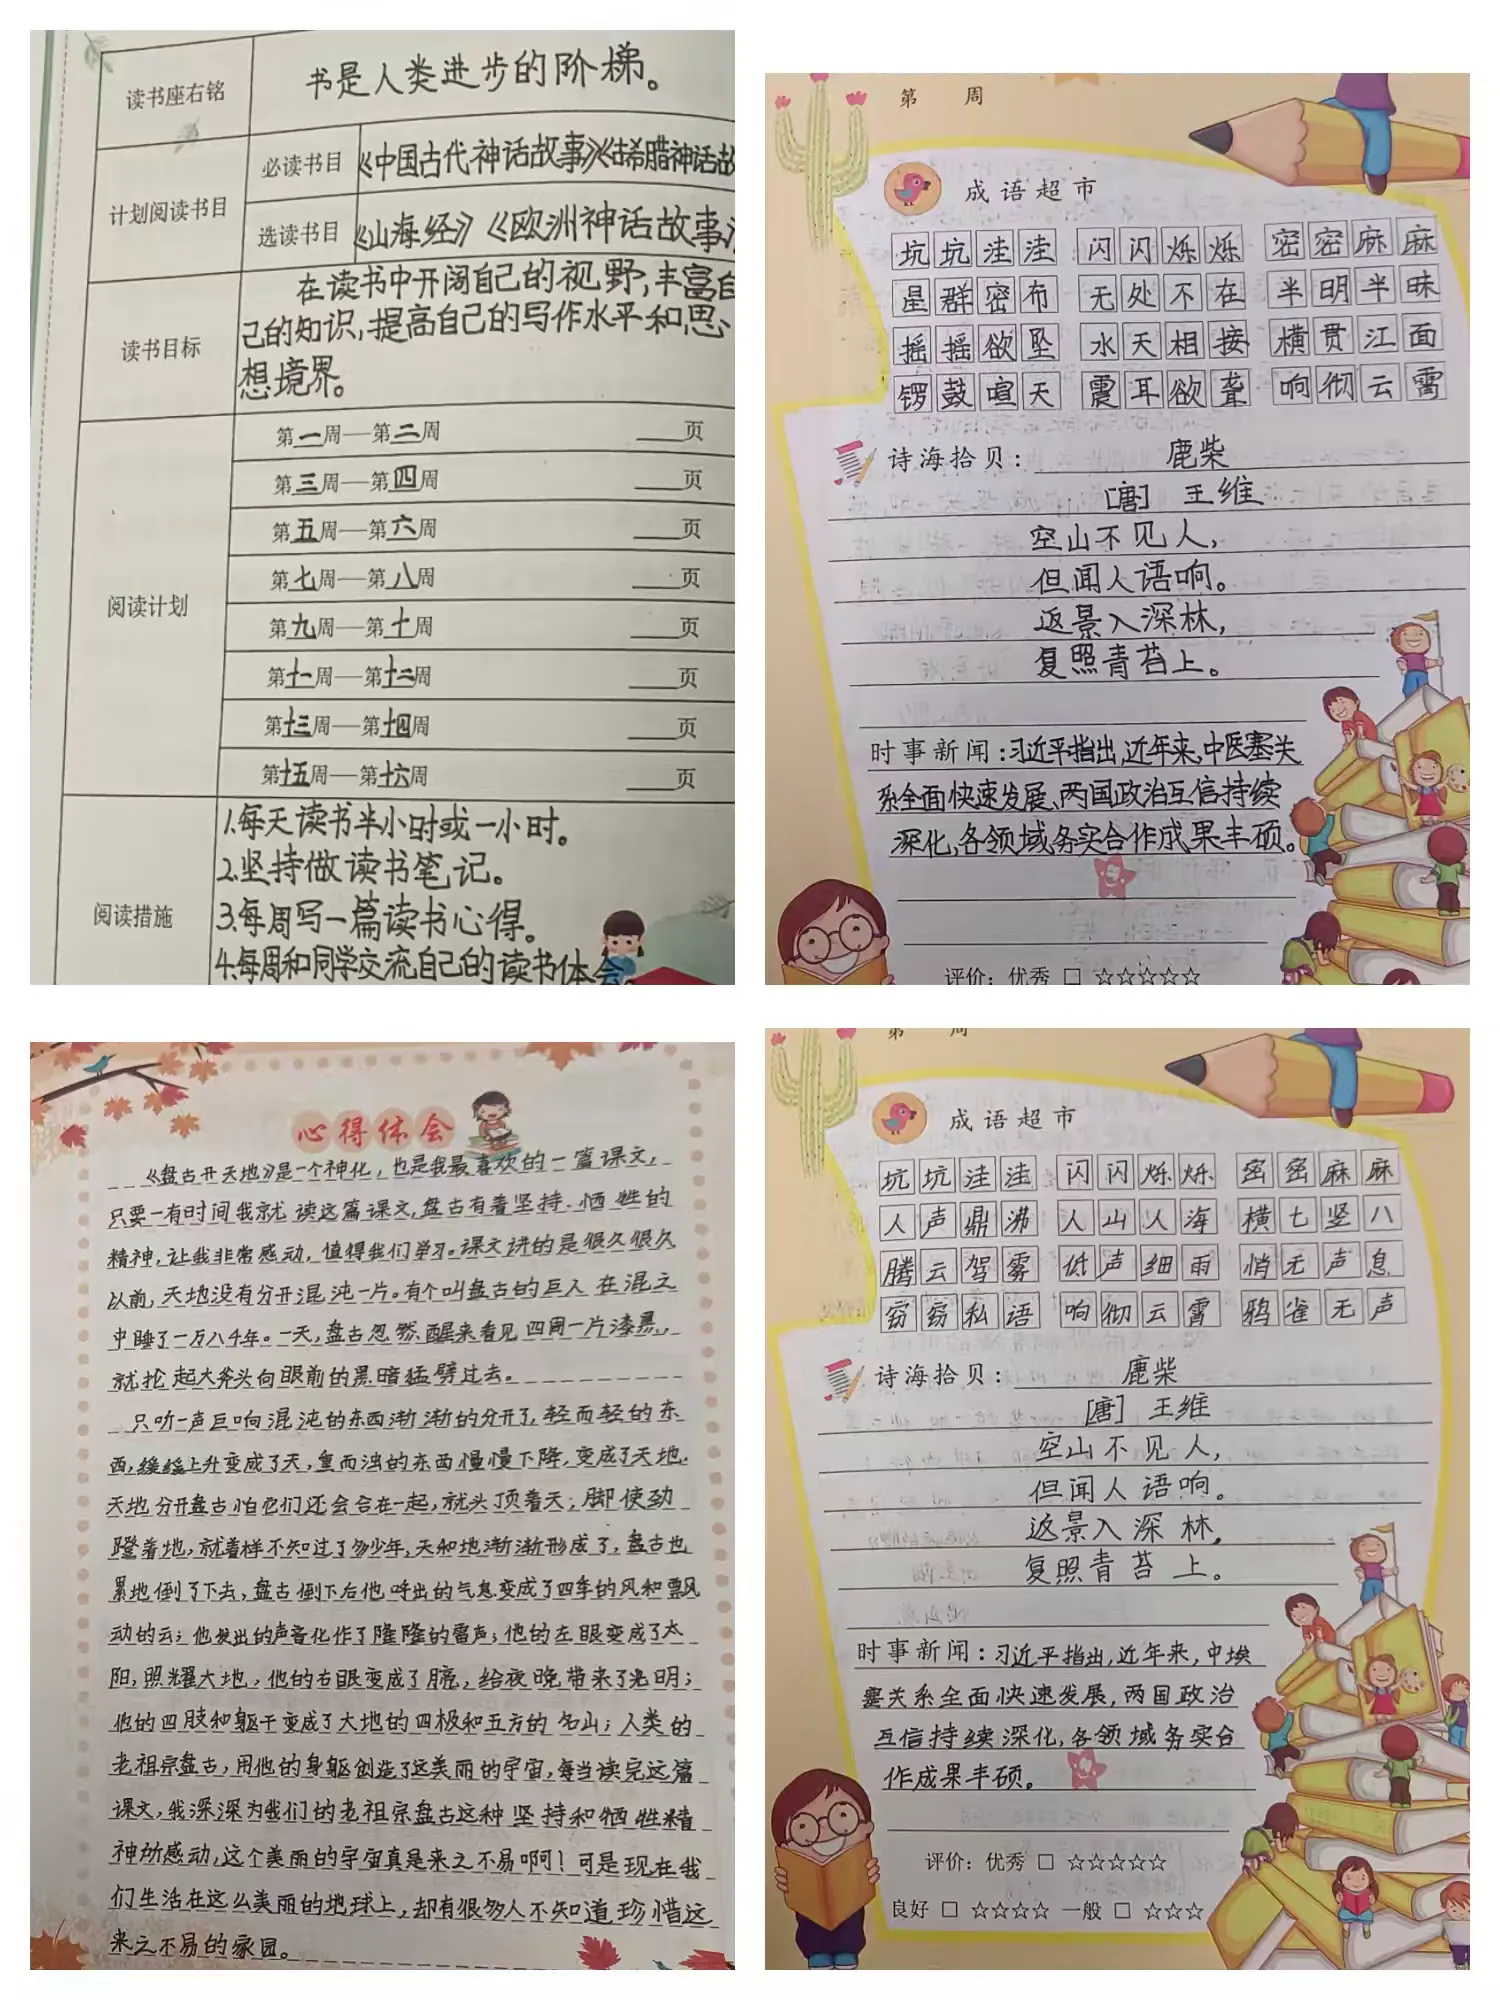 读书座右铭
书是人类进步的阶梯。
计划阅读书目
必读书目
《中国古代神话故事》《古希腊神话故
选读书目
《山海经》《欧洲神话故事
读书目标
在读书中开阔自己的视野,丰富自
己的知识,提高自己的写作水平和思
想境界。
阅读计划
第一周—第二周 页
第三周—第四周 页
第五周—第六周 页
第七周—第八周 页
第九周—第十周 页
第十一周—第十二周 页
第十三周—第十四周 页
第十五周—第十六周 页
阅读措施
1.每天读书半小时或一小时。
2.坚持做读书笔记。
3.每周写一篇读书心得。
4.每周和同学交流自己的读书体会。
第 周
成语超市
坑坑洼洼 闪闪烁烁 密密麻麻
星群密布 无处不在 半明半昧
摇摇欲坠 水天相接 横贯江面
锣鼓喧天 震耳欲聋 响彻云霄
诗海拾贝: 鹿柴
[唐] 王维
空山不见人,
但闻人语响。
返景入深林,
复照青苔上。
时事新闻:习近平指出,近年来,中医塞关
系全面快速发展、两国政治互信持续
深化,各领域务实合作成果丰硕。
评价: 优秀 □ ☆☆☆☆☆
心得体会
《盘古开天地》是一个神化,也是我最喜欢的一篇课文,
只要一有时间我就读这篇课文,盘古有着坚持.牺牲的
精神,让我非常感动,值得我们学习。课文讲的是很久很久
以前,天地没有分开混沌一片。有个叫盘古的巨人在混之
中睡了一万八千年。一天,盘古忽然醒来看见四周一片漆黑,
就抡起大斧头向眼前的黑暗猛劈过去。
只听一声巨响混沌的东西渐渐的分开了,轻而轻的东
西,缓缓上升变成了天,重而浊的东西慢慢下降,变成了天地.
天地分开盘古怕它们还会合在一起,就头顶着天;脚使劲
蹬着地,就着样不知过了多少年,天和地渐渐形成了,盘古也
累地倒了下去,盘古倒下后他呼出的气息变成了四季的风和飘
动的云;他发出的声音化作了隆隆的雷声;他的左眼变成了太
阳,照耀大地,他的右眼变成了,给夜晚带来了光明;
他的四肢和躯干变成了大地的四极和五方的名山;人类的
老祖宗盘古,用他的身躯创造了这美丽的宇宙,每当读完这篇
课文,我深深为我们的老祖宗盘古这种坚持和牺牲精
神所感动,这个美丽的宇宙真是来之不易啊!可是现在我
们生活在这么美丽的地球上,却有很多人不知道珍惜这
来之不易的家园。
第 周
成语超市
坑坑洼洼 闪闪烁烁 密密麻麻
人声鼎沸 人山人海 横七竖八
腾云驾雾 低声细雨 悄无声息
窃窃私语 响彻云霄 鸦雀无声
诗海拾贝: 鹿柴
[唐] 王维
空山不见人,
但闻人语响。
返景入深林,
复照青苔上。
时事新闻:习近平指出,近年来,中埃
塞关系全面快速发展,两国政治
互信持续深化,各领域务实合
作成果丰硕。
评价: 优秀 □ ☆☆☆☆☆
良好 □ ☆☆☆☆ 一般 □ ☆☆☆